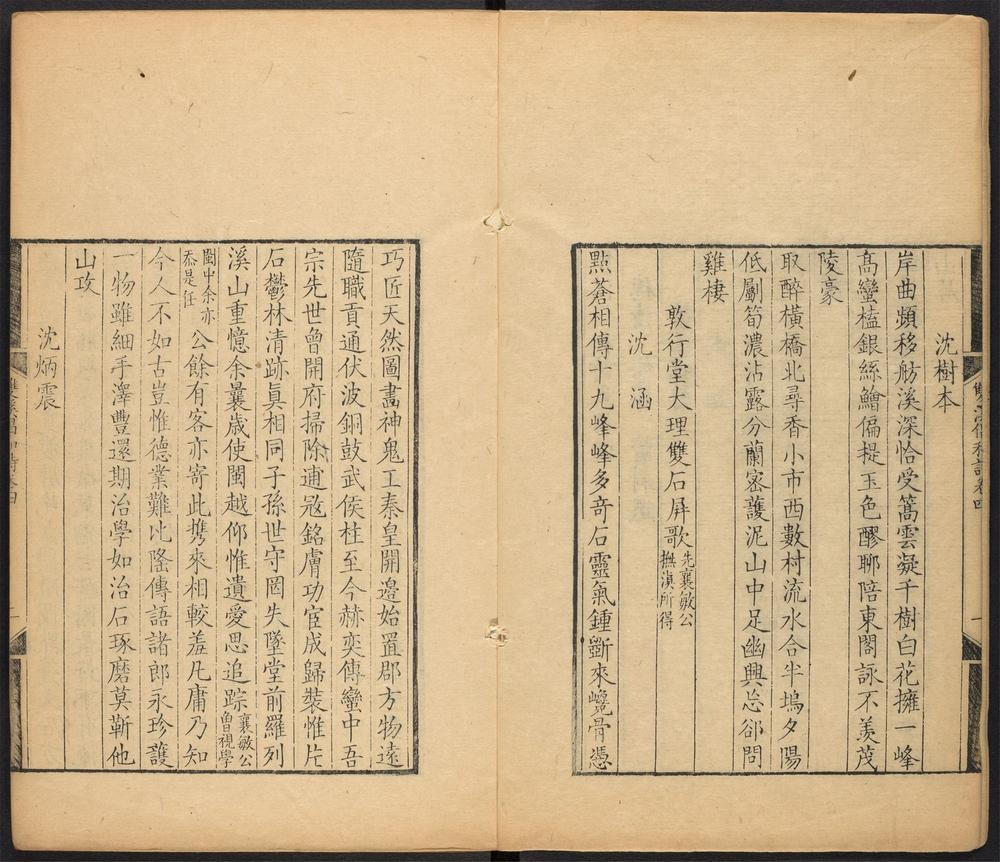 沈樹本
岸曲頻移舫溪深恰受篙雲凝千樹白花擁一峰
高蠻榼銀絲鱠偏提玉色醪聊陪東閣詠不羨茂
陵豪
取醉橫橋北尋香小市西數村流水合半塢夕陽
低劚筍濃沾露分蘭密護泥山中足幽興忘郤問
雞棲
敦行堂大理雙石屏歌先襄敏公
撫滇所得
沈涵
點蒼相傳十九峰峰多奇石靈氣鍾斵來巉骨憑
巧匠天然圖畫神鬼工秦皇開邊始置郡方物遠
隨職貢通伏波銅鼓武侯柱至今赫奕傳蠻中吾
宗先世曾開府掃除逋寇銘膚功宦成歸裝惟片
石鬱林清跡眞相同子孫世守罔失墜堂前羅列
溪山重憶余曩歲使閩越仰惟遺愛思追踪襄敏公
曾視學
閩中余亦
忝是任公餘有客亦寄此携來相較羞凡庸乃知
今人不如古豈惟德業難比隆傳語諸郎永珍護
一物雖細手澤豐還期治學如治石琢磨莫靳他
山攻
沈炳震